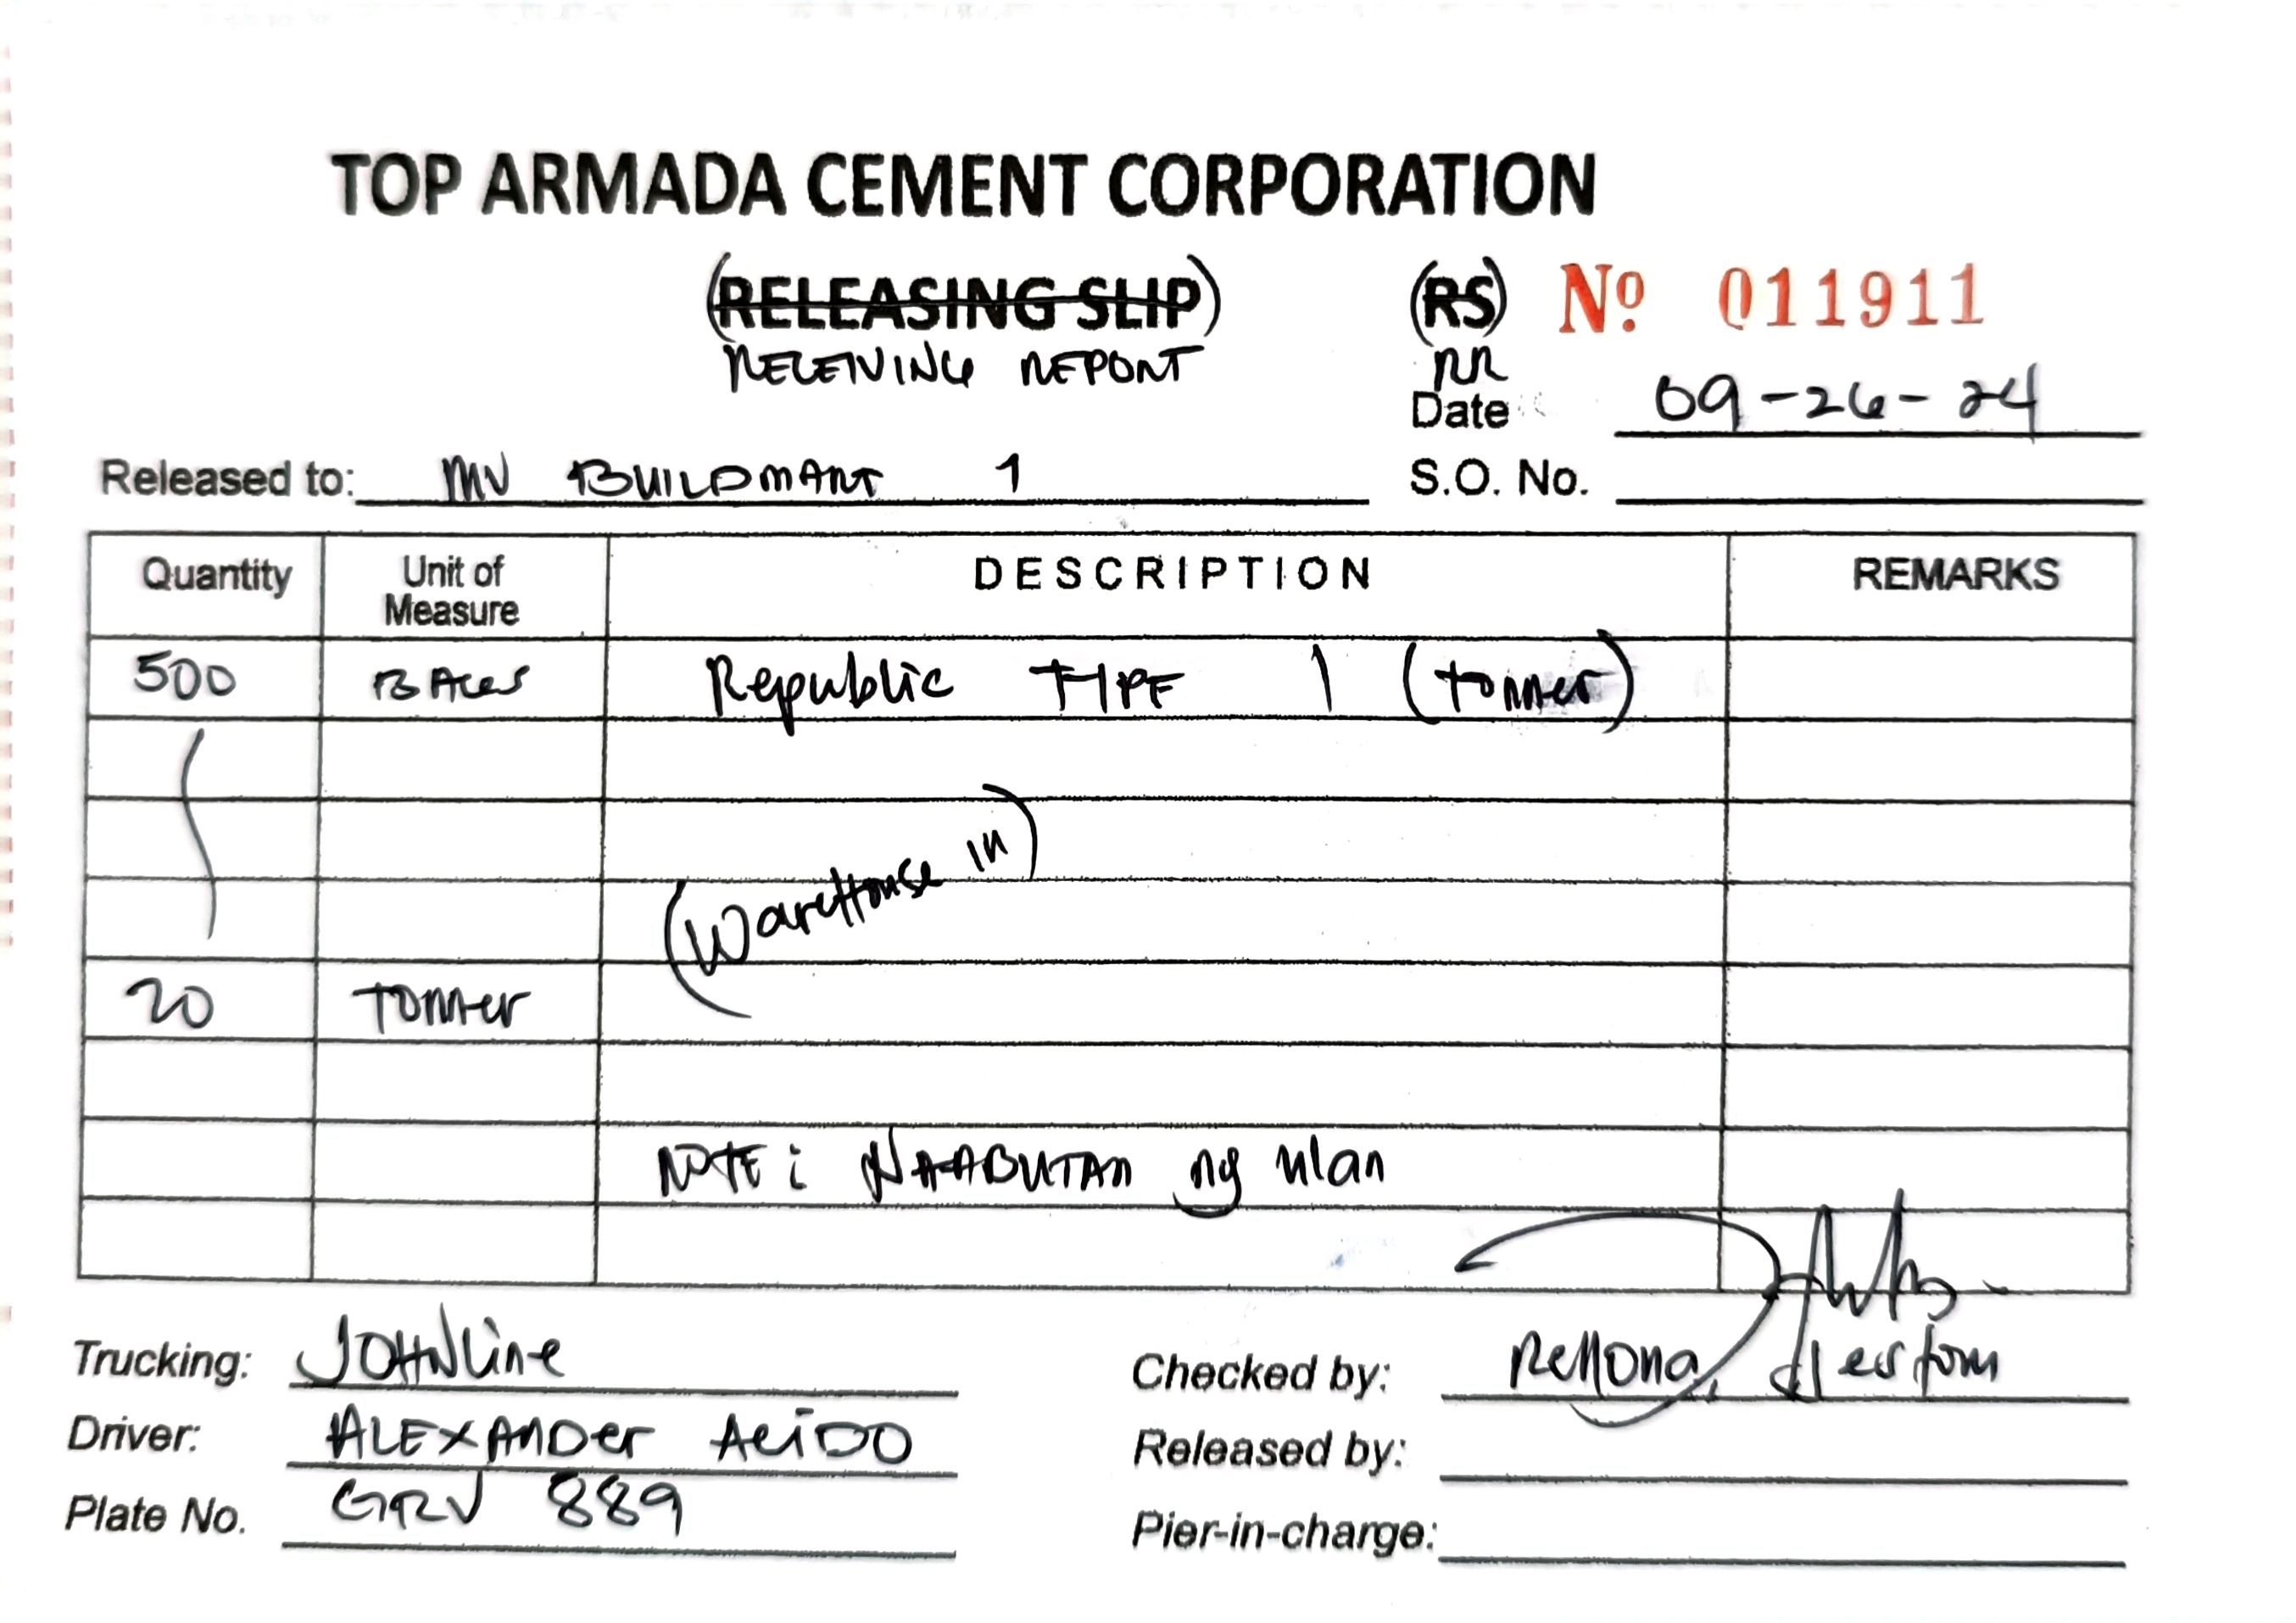 TOP ARMADA CEMENT CORPORATION
(RELEASING SLIP) (RS) Nº 011911
RECEIVING REPORT RR
Date 09-26-24
Released to: MV BUILDMART 1 S.O. No.
Quantity Unit of Measure DESCRIPTION REMARKS
500 BAGS Republic TYPE 1 (tonner)
(WareHouse in)
20 Tonner
NOTE: NAABUTAN ng ulan
Trucking: JOHNLine Checked by: Rellona,
Driver: ALEXANDer ACiDO Released by:
Plate No. GRV 889 Pier-in-charge: